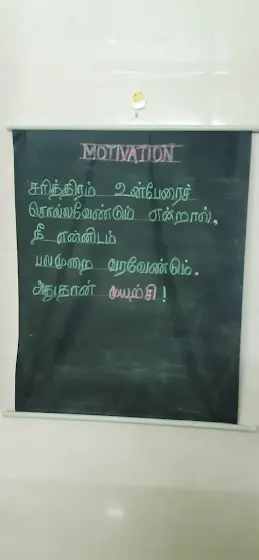 MOTIVATION
சரித்திரம் உன்பேரைச்
சொல்லவேண்டும் என்றால்,
நீ என்னிடம்
பலமுறை வரவேண்டும்.
அதுதான் முயற்சி!